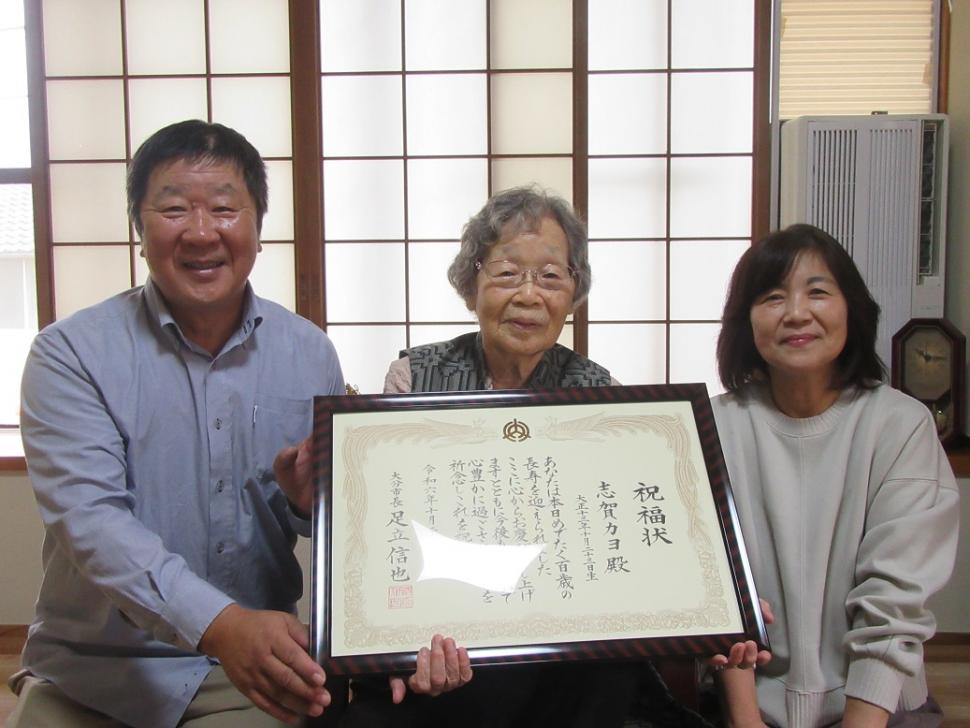 祝福状
志賀カヨ殿
大正十三年十月二十三日生
あなたは本日めでたく百歳の
長寿を迎えられ した
ここに心からお慶 し上げ
ますとともに今後 て
心豊かに過ごさ を
祈念しこれを祝
令和六年十月
大分市長 足立信也